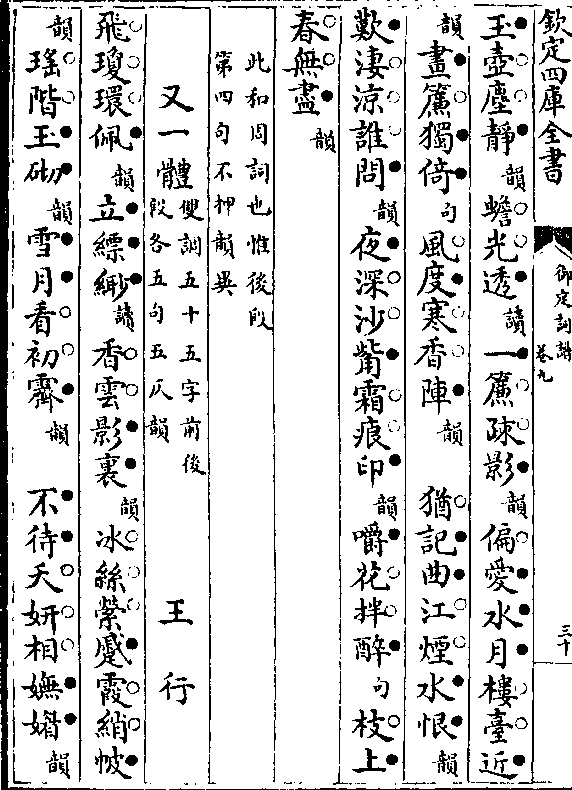 欽定四庫全書
御定詞譜
卷九
三十
玉壺塵靜韻蟾光透讀一簾疎影韻偏愛水月樓臺近
韻畫簾獨倚句風度寒香陣韻猶記曲江煙水恨韻
歎淒涼誰問韻夜深沙觜霜痕印韻嚼花拌醉句枝上
春無盡韻
此和周詞也惟後段
第四句不押韻異
又一體雙調五十五字前後
段各五句五仄韻
王行
飛瓊環佩韻立縹緲讀香雲影裏韻冰絲縈蹙霞綃帔
韻瑤階玉砌韻雪月看初霽韻不待夭妍相嫵媚韻